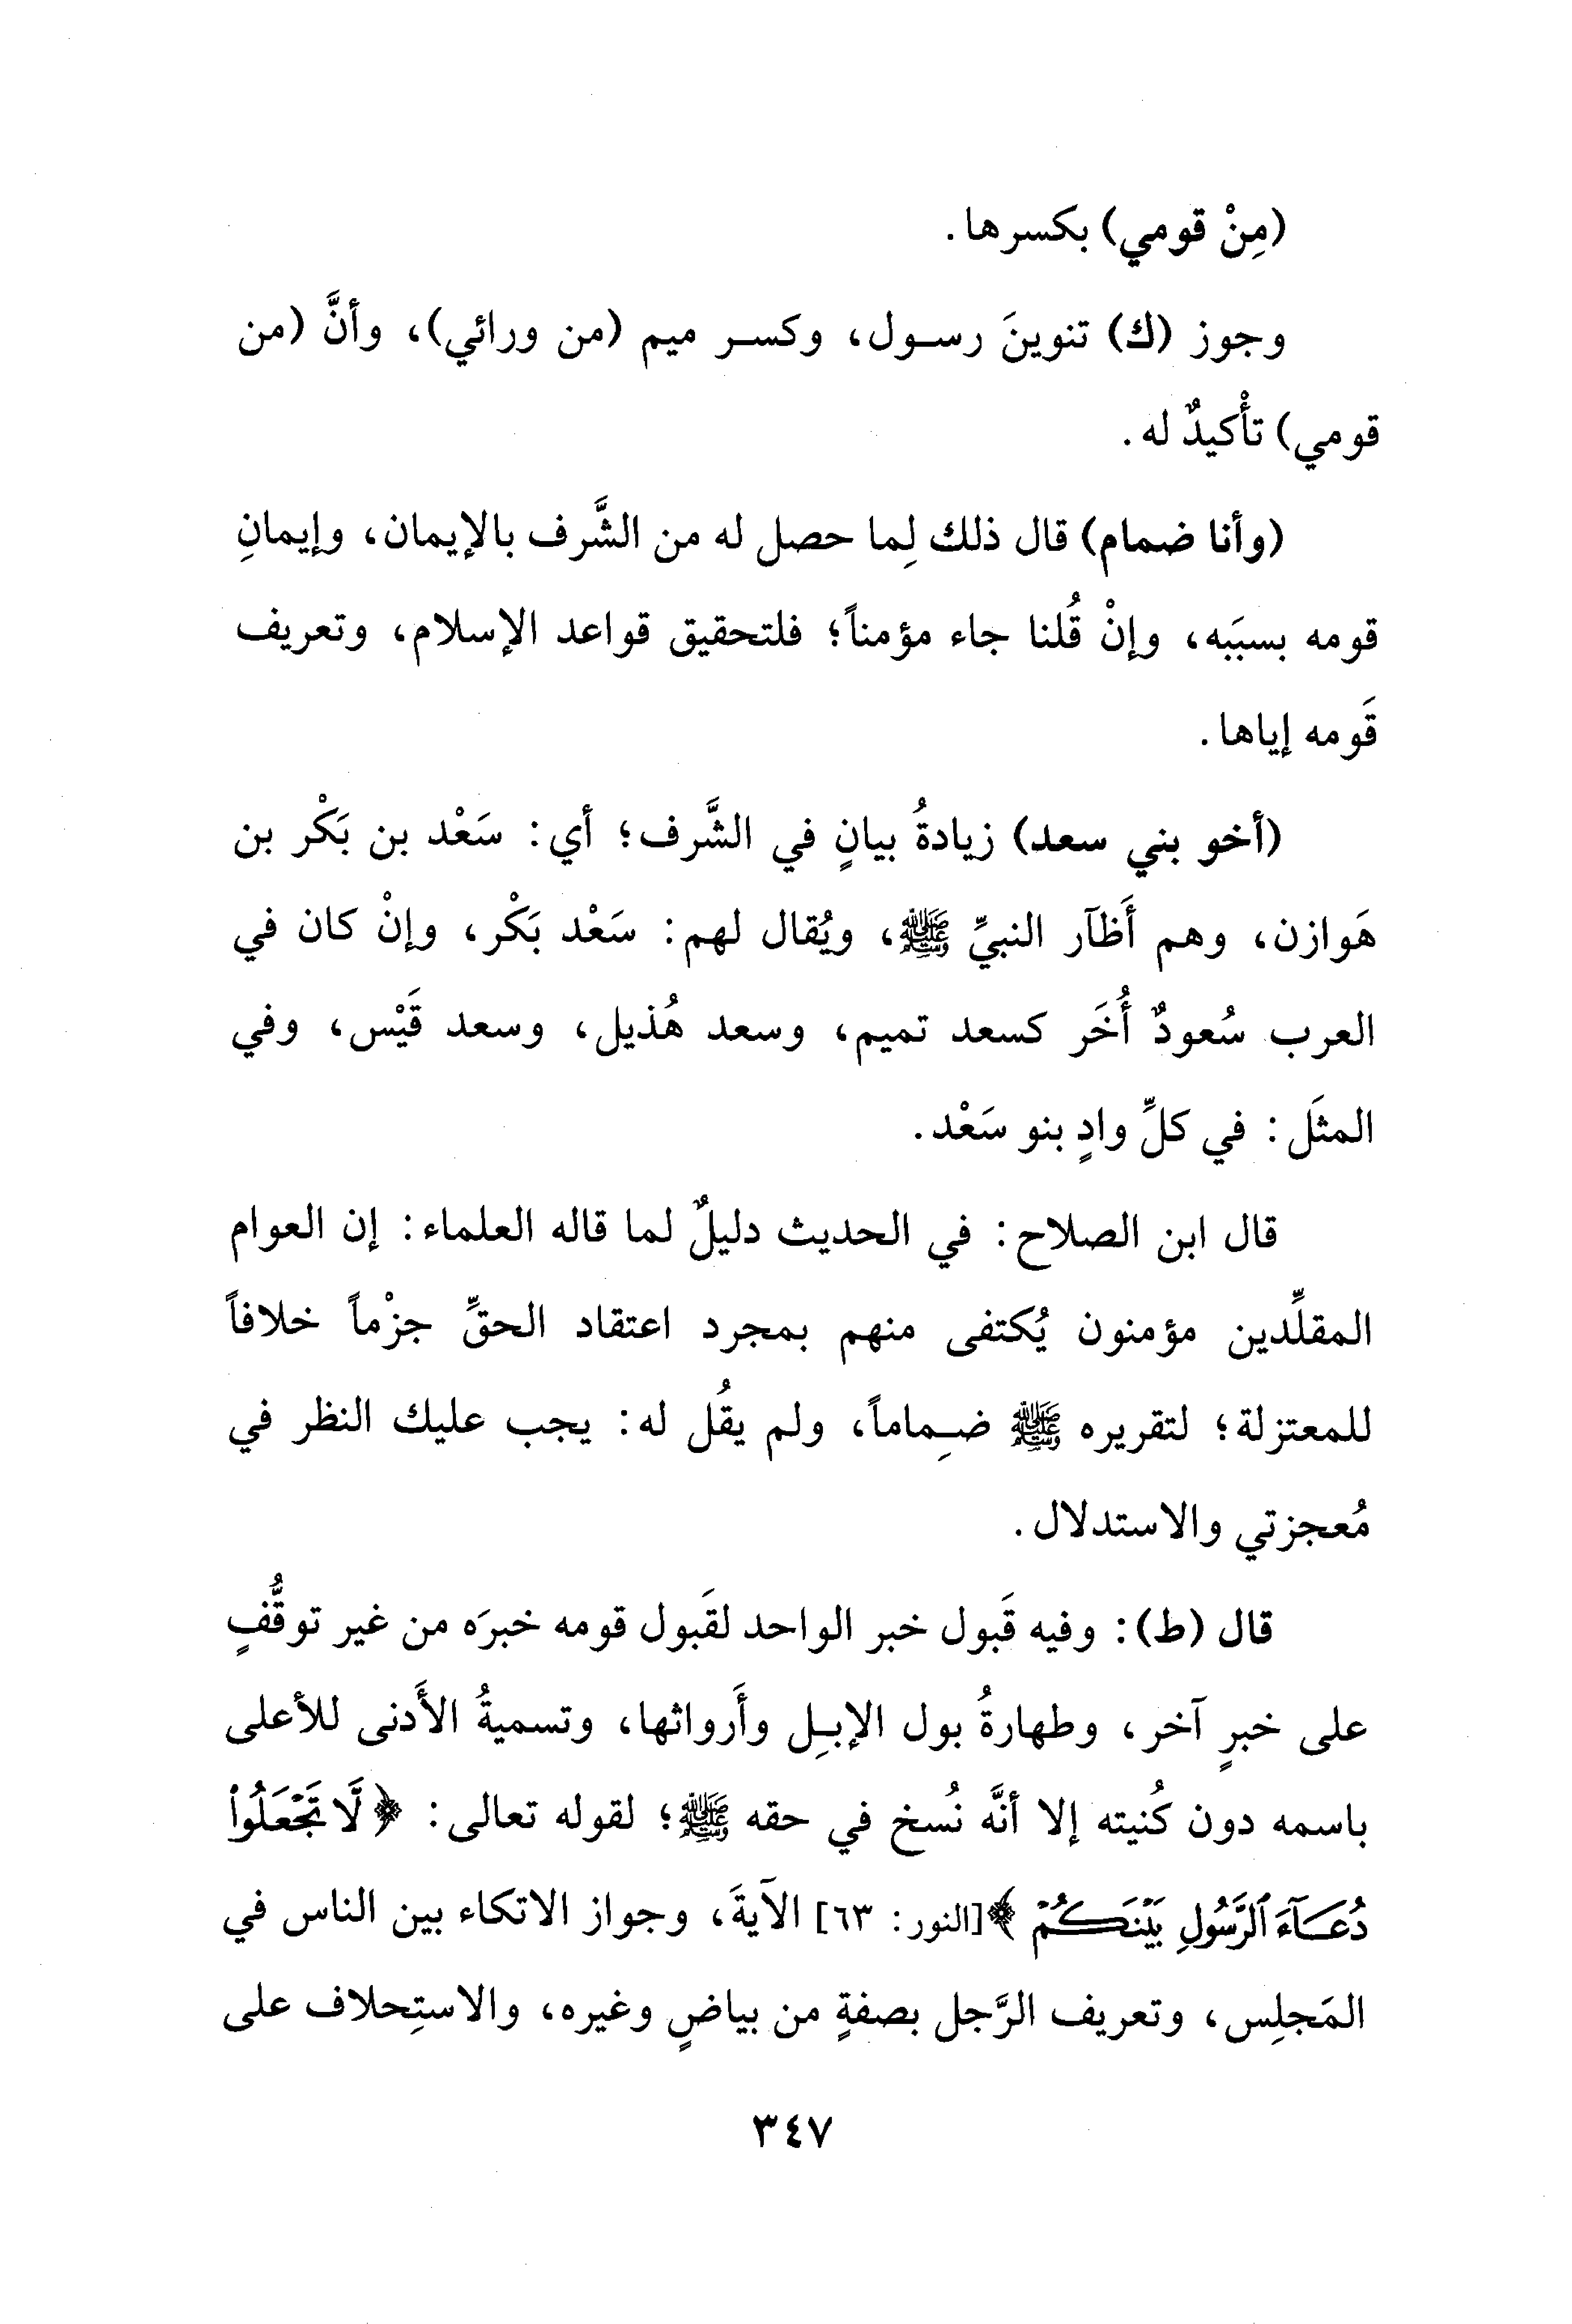 (مِنْ قومي) بكسرها.
وجوز (ك) تنوينَ رسول، وكسر ميم (من ورائي)، وأنَّ (من
قومي) تأْكيدٌ له.
(وأنا ضمام) قال ذلك لِما حصل له من الشَّرف بالإيمان، وإيمانِ
قومه بسبَبه، وإنْ قُلنا جاء مؤمناً؛ فلتحقيق قواعد الإسلام، وتعريف
قَومه إياها.
(أخو بني سعد) زيادةُ بيانٍ في الشَّرف؛ أي: سَعْد بن بَكْر بن
هَوازن، وهم أَظآر النبيِّ ﷺ، ويُقال لهم: سَعْد بَكْر، وإنْ كان في
العرب سُعودٌ أُخَر كسعد تميم، وسعد هُذيل، وسعد قَيْس، وفي
المثَل: في كلِّ وادٍ بنو سَعْد.
قال ابن الصلاح: في الحديث دليلٌ لما قاله العلماء: إن العوام
المقلِّدين مؤمنون يُكتفى منهم بمجرد اعتقاد الحقِّ جزْماً خلافاً
للمعتزلة؛ لتقريره ﷺ ضِماماً، ولم يقُل له: يجب عليك النظر في
مُعجزتي والاستدلال.
قال (ط): وفيه قَبول خبر الواحد لقَبول قومه خبرَه من غير توقُّفٍ
على خبرٍ آخر، وطهارةُ بول الإبِل وأَرواثها، وتسميةُ الأَدنى للأعلى
باسمه دون كُنيته إلا أنَّه نُسخ في حقه ﷺ؛ لقوله تعالى: ﴿لَّا تَجْعَلُواْ
دُعَآءَ ٱلرَّسُولِ بَيْنَكُمْ﴾ [النور: ٦٣] الآيةَ، وجواز الاتكاء بين الناس في
المَجلِس، وتعريف الرَّجل بصفةٍ من بياضٍ وغيره، والاستِحلاف على
٣٤٧